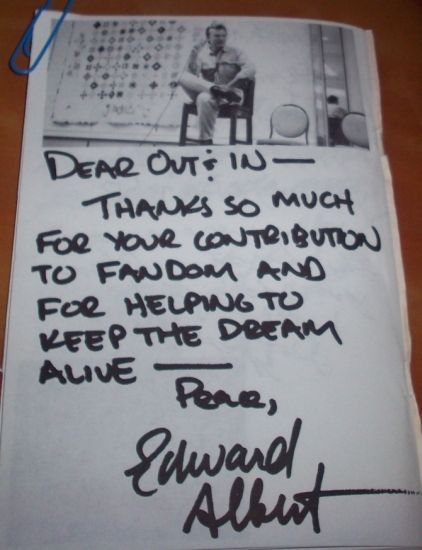 DEAR OUT & IN —
THANKS SO MUCH
FOR YOUR CONTRIBUTION
TO FANDOM AND
FOR HELPING TO
KEEP THE DREAM
ALIVE —
PEACE,
Edward
Albert